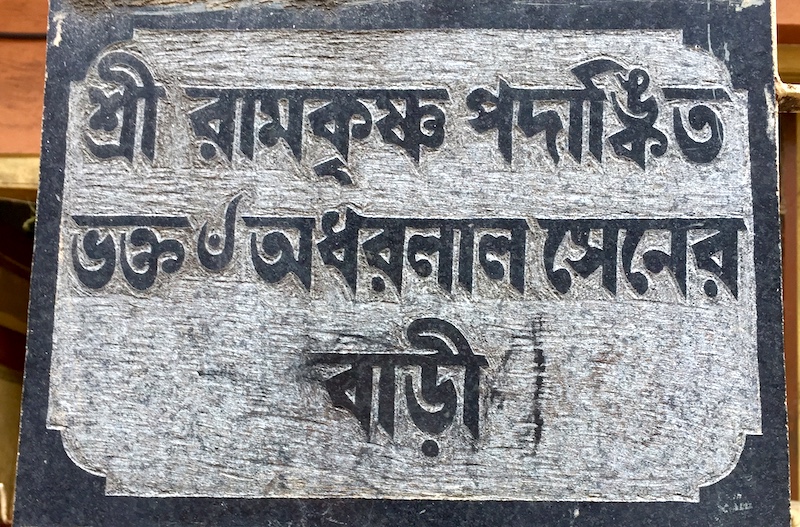 শ্রী রামকৃষ্ণ পদাঙ্কিত
ভক্ত ৺অধরলাল সেনের
বাড়ী